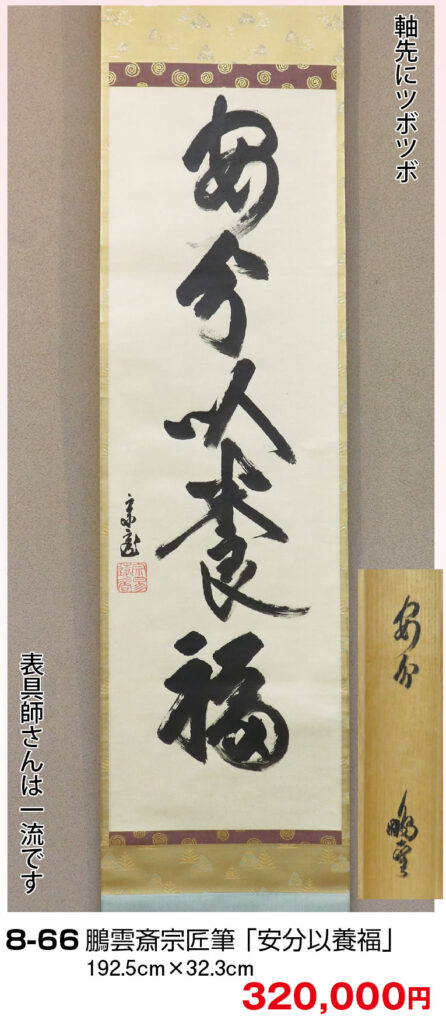 軸先にツボツボ
安分以養福
宗室
安分
鵬雲
表具師さんは一流です
8-66 鵬雲斎宗匠筆「安分以養福」
192.5cm×32.3cm
320,000円